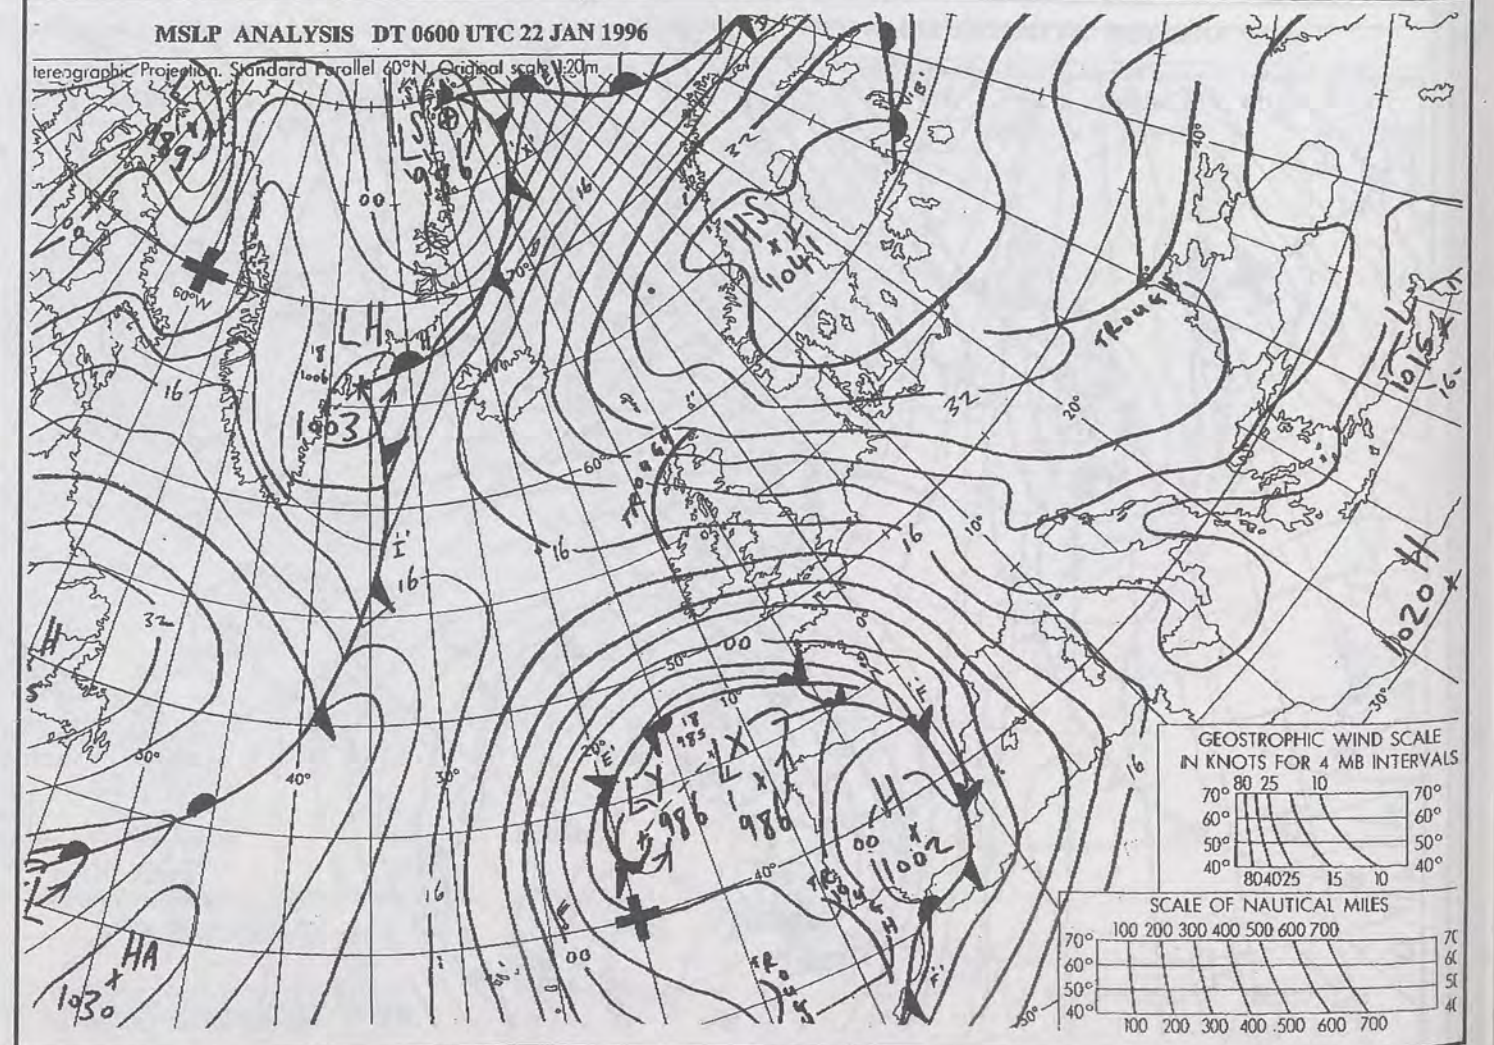 MSLP ANALYSIS DT 0600 UTC 22 JAN 1996
tereographic Projection. Standard Parallel 60°N Original scale 1:20m
L
989
LS
976
00
16
32
'B'
40°
H-S
1041
60°W
70°
LH
18
1006
1003
H
16
TROUGH
L
1015
16
32
20°
TROUGH
60°
'I'
16
16
16
10°
H
1020
32
H
00
50°
0°
10°
30°
20°
'E'
18
985
LX
LY
986
L
986
'F'
H
00
1002
50°
40°
30°
40°
TROUGH
16
16
L
HA
1030
00
TROUGH
'F'
50°
GEOSTROPHIC WIND SCALE
IN KNOTS FOR 4 MB INTERVALS
80 25 10
70° 70°
60° 60°
50° 50°
40° 40°
80 40 25 15 10
SCALE OF NAUTICAL MILES
100 200 300 400 500 600 700
70° 70
60° 60
50° 50
40° 40
100 200 300 400 500 600 700